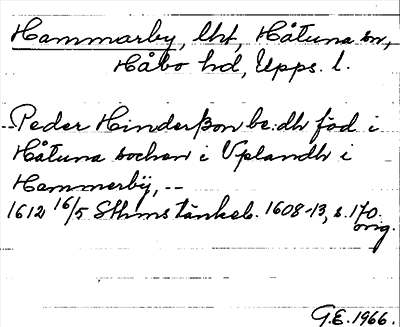 Hammarby, lht, Håtuna sn,
Håbo hd, Upps. l.
--Peder Hinderßon be:dh föd i
Håtuna sochen i Vplandh i
Hammerbÿ, --
1612 16/5 Sthms tänkeb. 1608-13, s. 170.
orig.
G.E. 1966.